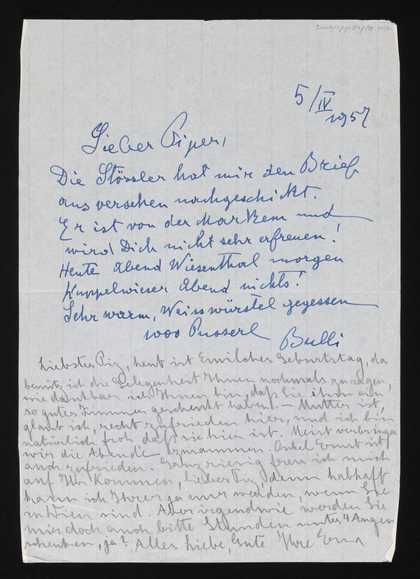 5/IV
1957
Lieber Piper,
Die Stössler hat mir den Brief
aus versehen nachgeschickt.
Er ist von der Markzem und
wird Dich nicht sehr erfreuen!
Heute Abend Wiesenthal morgen
Kuppelwieser Abend nichts!
Sehr warm, Weisswürstel gegessen
1000 Pusserl Bulli
Liebster Pip, heut ist Geburtstag, da
benütz ich die Gelegenheit Ihnen nochmals zu sagen,
wie dankbar ich Ihnen bin, daß Sie ein
so gutes Zimmer haben. – Mutter ist,
glaub ich, recht zufrieden hier, und ich bin
natürlich froh daß sie hier ist. Meist verbringen
wir die Abende zusammen. Onkel Ernst ist
auch zufrieden. Ganz riesig freu ich mich
auf Ihr Kommen, lieber Pip, denn habhaft
kann ich Ihrer ja nur werden, wenn Sie
sind. Aber irgendwie werden Sie
mir doch auch bitte Stunden unter 4 Augen
schenken, ja? Alles Liebe, Gute Ihre Erna